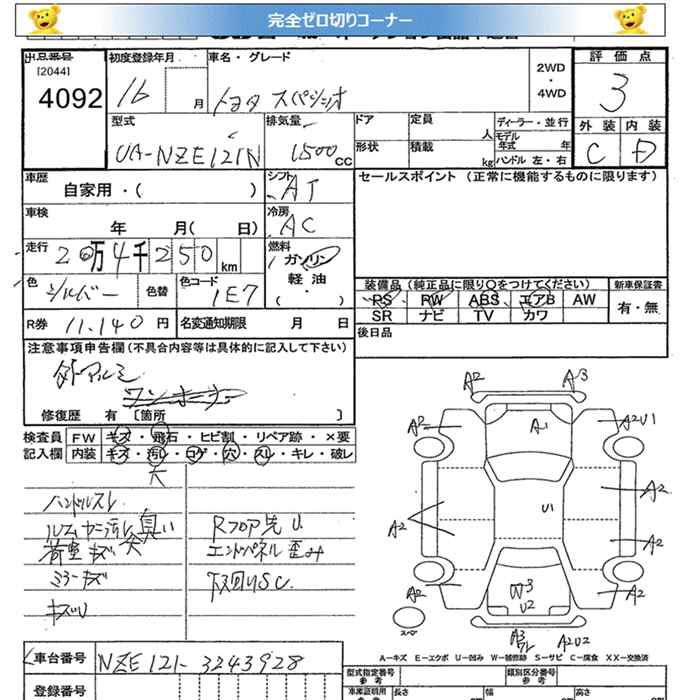 完全ゼロ切りコーナー
出品番号 初度登録年月 車名・グレード 2WD・4WD 評価点
[2044]
4092 16 月 トヨタ スパシオ 3
外装 内装
C D
型式 排気量 ドア 定員 人 ディーラー・並行
UA-NZE121N 1500 CC 形状 積載 kg モデル年式 年
ハンドル 左・右
車歴 シフト セールスポイント (正常に機能するものに限ります)
自家用・( ) AT
車検 年 月( 日) 冷房 AC
走行 2 0万4千250 km 燃料 ガソリン
軽油
( )
色 シルバー 色替 色コード 1E7
装備品 (純正品に限り○をつけてください) 新車保証書
PS PW ABS エアB AW 有・無
SR ナビ TV カワ
R券 11.140 円 名変通知期限 月 日
後日品
注意事項申告欄(不具合内容等は具体的に記入して下さい)
外アルミ
ワンオーナー
修復歴 有 [箇所 ]
検査員 FW キズ・飛石・ヒビ割・リペア跡・×要
記入欄 内装 キズ・汚レ・コゲ・穴・スレ・キレ・破レ
大
ハンドルスレ
ルーム ヤニ汚レ 臭い Rフロア先 U
荷室 キズ 大 エンドパネル歪み
ミラーキズ 下又回りS.C.
キズU
A2 A3
A2 A1 A2U1
A2 U1 A2
A2
A2 W3 A2
U2
スペア
A3 ワレ A2U2
A－キズ E－エクボ U－凹み W－補修跡 S－サビ C－腐食 XX－交換済
車台番号 NZE121-3243928
型式指定番号 参考 類別区分番号 参考
登録番号 車庫証明用 参考 長さ 幅 高さ